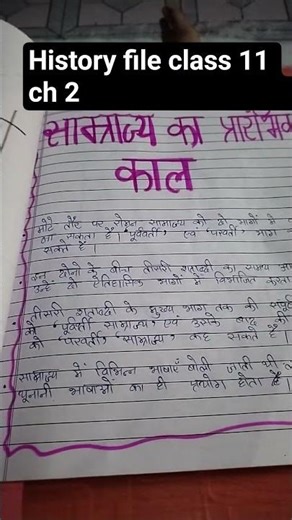 History file class 11
ch 2
साम्राज्य का प्रारंभिक
काल
मोटे तौर पर रोमन साम्राज्य को दो भागों में
जा सकता है। 'पूर्ववर्ती' एवं 'परवर्ती' भाग
सकते हैं।
इन दोनों के बीच तीसरी शताब्दी का समय
उन्हें दो ऐतिहासिक भागों में विभाजित करता
तीसरी शताब्दी के मुख्य भाग तक की
को 'पूर्ववर्ती साम्राज्य' एवं उसके बाद की
को 'परवर्ती साम्राज्य' कह सकते हैं।
साम्राज्य में विभिन्न भाषाएँ बोली जाती थी
यूनानी भाषाओं का ही प्रयोग होता है।